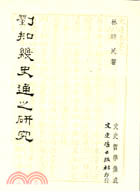 劉知幾史通之研究
林時民著
文史哲學集成
文史哲出版社印行